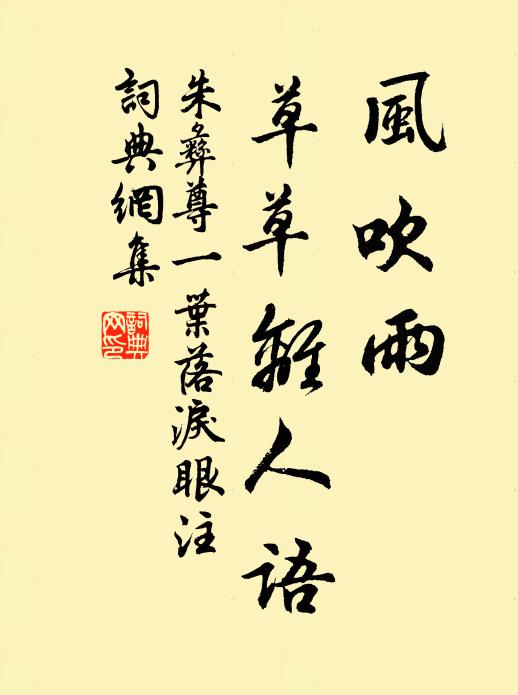 風吹雨
草草離人語
朱彝尊一葉落淚眼注
詞典網集
詞典
网印